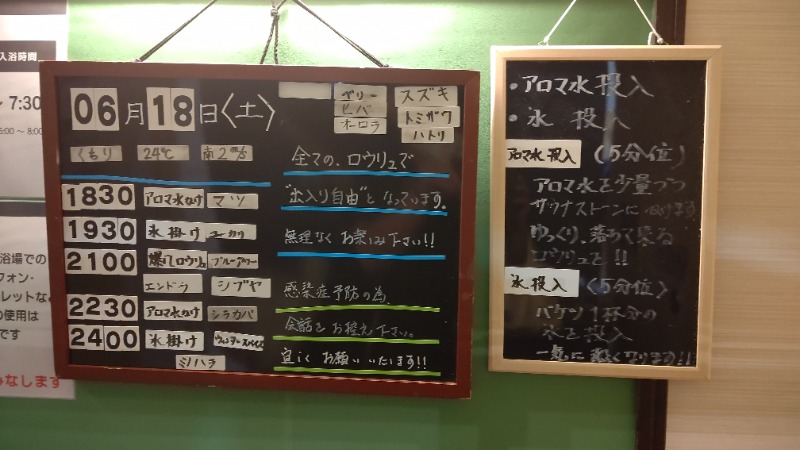 入浴時間
～ 7:30
浴場での
フォン・
レットなど
の使用は
です
なします
06月18日〈土〉
くもり 24℃ 南2m/s
1830 アロマ水かけ マツ
1930 氷掛け ユーカリ
2100 爆ロウリュ ブルーアワー
エンドラ シブヤ
2230 アロマ水かけ シラカバ
2400 氷掛け
ミノハラ
ベリー
ヒバ
オーロラ
スズキ
トミザワ
ハトリ
全ての、ロウリュで
"出入り自由"となっています。
無理なくお楽しみ下さい!!
感染症予防の為、
会話をお控え下さい。
宜しくお願いいたします!!
・アロマ水投入
・氷投入
アロマ水投入 (5分位)
アロマ水を少量づつ
サウナストーンにかけます
ゆっくり、落ち着て
ロウリュを!!
氷投入 (5分位)
バケツ1杯分の
氷を投入
一気に熱くなります!!